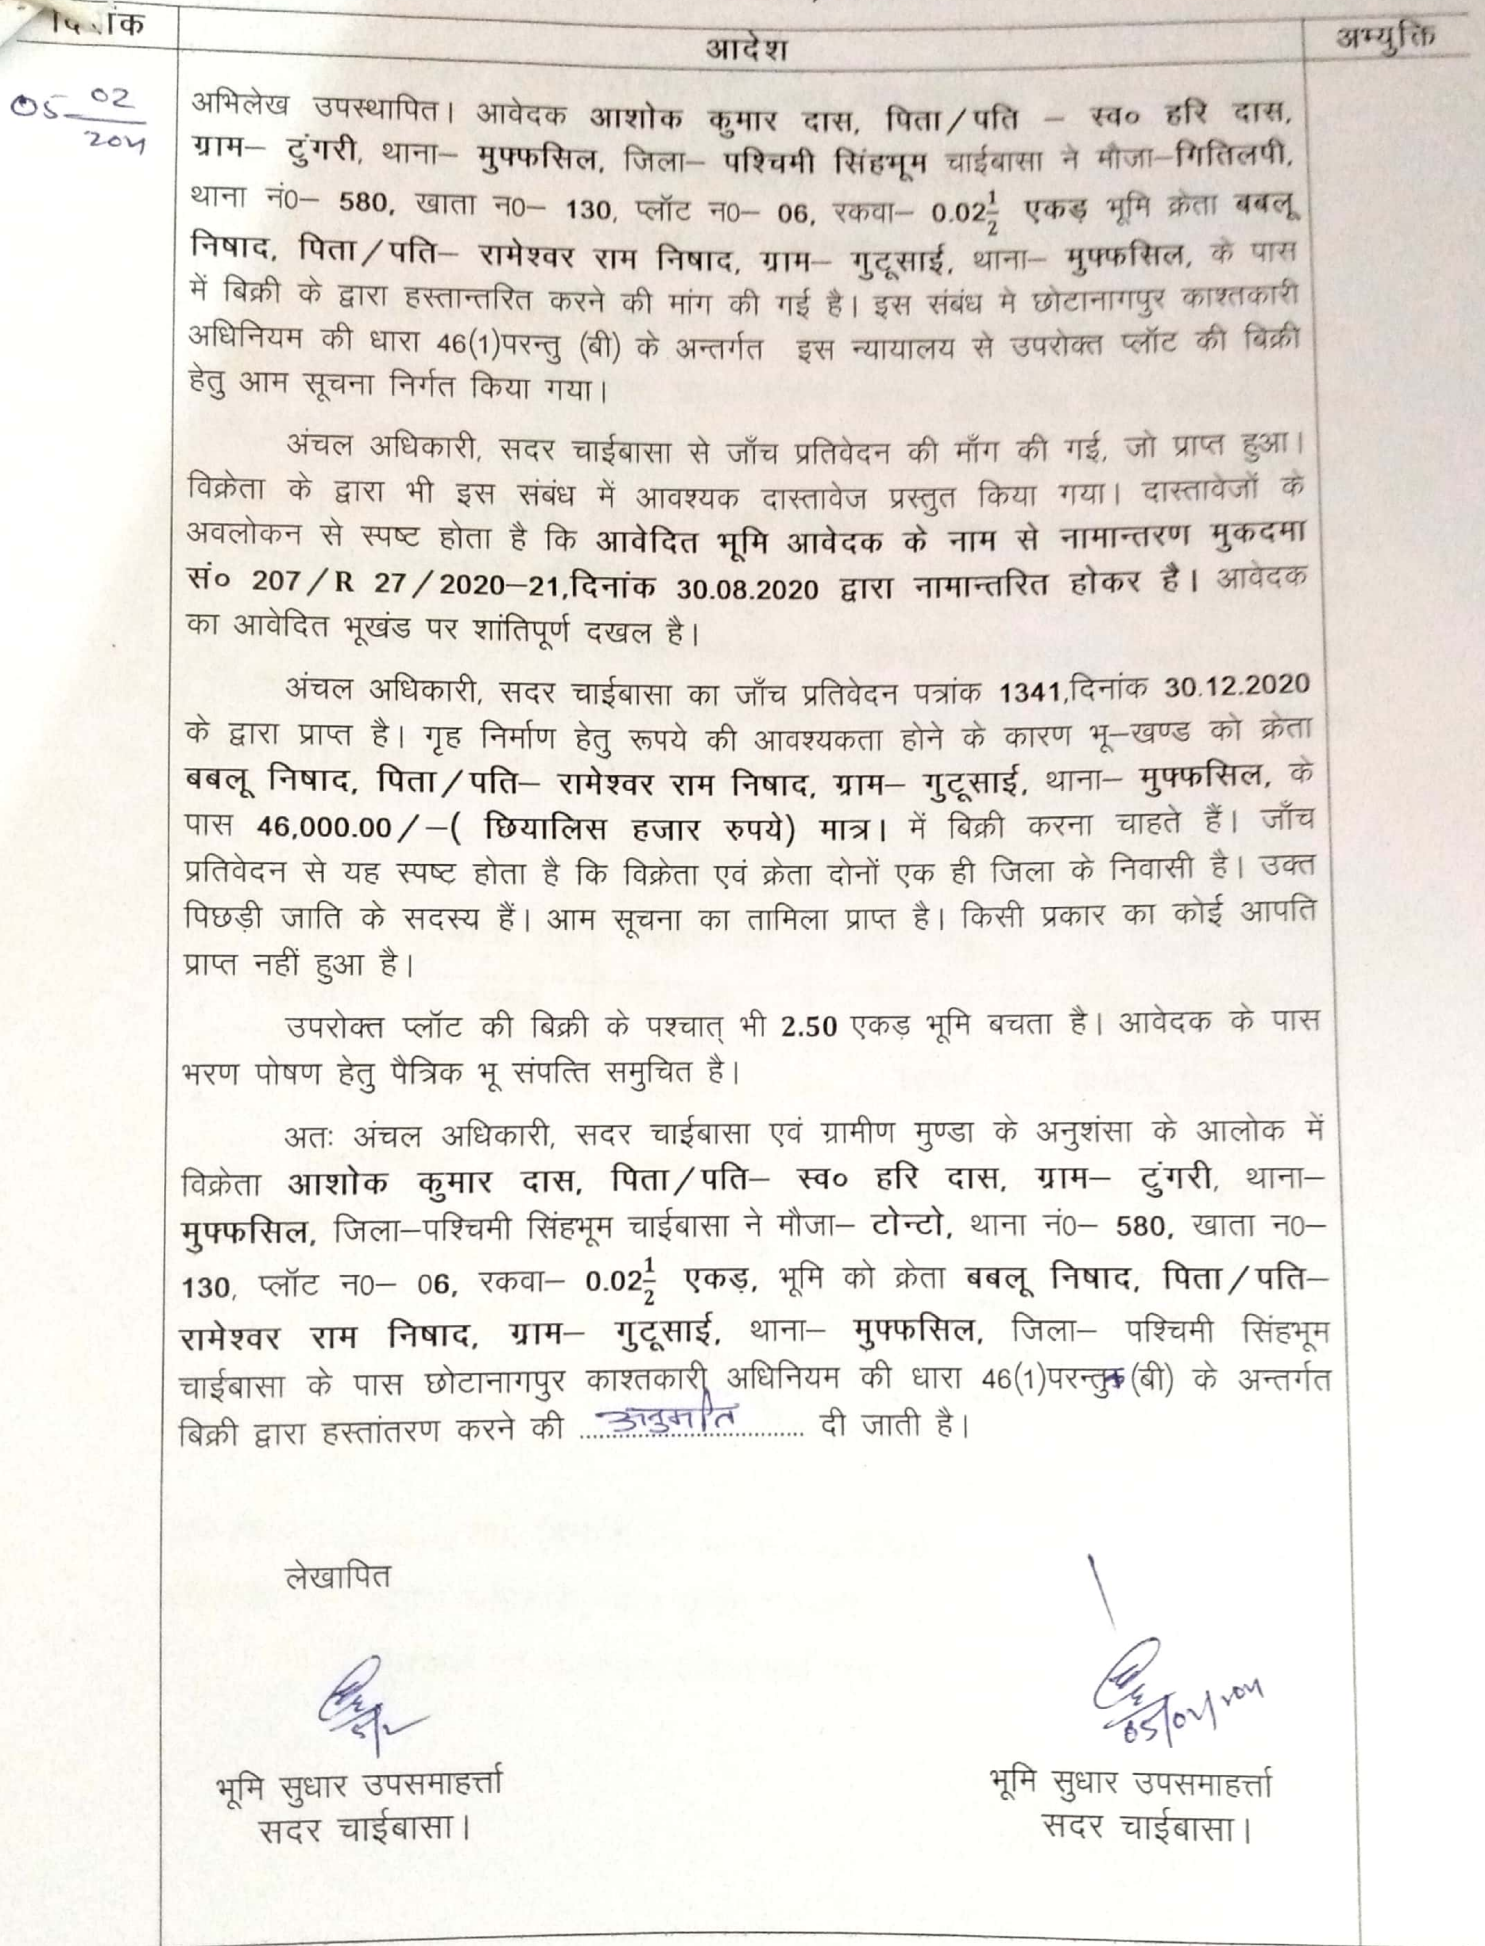 दिनांक
आदेश
अभ्युक्ति
05 02
अभिलेख उपस्थापित। आवेदक आशोक कुमार दास, पिता/पति – स्व० हरि दास,
ग्राम– टुंगरी, थाना– मुफ्फसिल, जिला– पश्चिमी सिंहभूम चाईबासा ने मौजा–गितिलपी,
थाना नं0– 580, खाता न0– 130, प्लॉट न0– 06, रकवा– 0.02½ एकड़ भूमि क्रेता बबलू
निषाद, पिता/पति– रामेश्वर राम निषाद, ग्राम– गुटूसाई, थाना– मुफ्फसिल, के पास
में बिक्री के द्वारा हस्तान्तरित करने की मांग की गई है। इस संबंध मे छोटानागपुर काश्तकारी
अधिनियम की धारा 46(1)परन्तु (बी) के अन्तर्गत इस न्यायालय से उपरोक्त प्लॉट की बिक्री
हेतु आम सूचना निर्गत किया गया।
अंचल अधिकारी, सदर चाईबासा से जाँच प्रतिवेदन की माँग की गई, जो प्राप्त हुआ।
विक्रेता के द्वारा भी इस संबंध में आवश्यक दास्तावेज प्रस्तुत किया गया। दास्तावेजों के
अवलोकन से स्पष्ट होता है कि आवेदित भूमि आवेदक के नाम से नामान्तरण मुकदमा
सं० 207/R 27/2020–21,दिनांक 30.08.2020 द्वारा नामान्तरित होकर है। आवेदक
का आवेदित भूखंड पर शांतिपूर्ण दखल है।
अंचल अधिकारी, सदर चाईबासा का जाँच प्रतिवेदन पत्रांक 1341,दिनांक 30.12.2020
के द्वारा प्राप्त है। गृह निर्माण हेतु रूपये की आवश्यकता होने के कारण भू–खण्ड को क्रेता
बबलू निषाद, पिता/पति– रामेश्वर राम निषाद, ग्राम– गुटूसाई, थाना– मुफ्फसिल, के
पास 46,000.00/–( छियालिस हजार रुपये) मात्र। में बिक्री करना चाहते हैं। जाँच
प्रतिवेदन से यह स्पष्ट होता है कि विक्रेता एवं क्रेता दोनों एक ही जिला के निवासी है। उक्त
पिछड़ी जाति के सदस्य हैं। आम सूचना का तामिला प्राप्त है। किसी प्रकार का कोई आपति
प्राप्त नहीं हुआ है।
उपरोक्त प्लॉट की बिक्री के पश्चात् भी 2.50 एकड़ भूमि बचता है। आवेदक के पास
भरण पोषण हेतु पैत्रिक भू संपत्ति समुचित है।
अतः अंचल अधिकारी, सदर चाईबासा एवं ग्रामीण मुण्डा के अनुशंसा के आलोक में
विक्रेता आशोक कुमार दास, पिता/पति– स्व० हरि दास, ग्राम– टुंगरी, थाना–
मुफ्फसिल, जिला–पश्चिमी सिंहभूम चाईबासा ने मौजा– टोन्टो, थाना नं0– 580, खाता न0–
130, प्लॉट न0– 06, रकवा– 0.02½ एकड़, भूमि को क्रेता बबलू निषाद, पिता/पति–
रामेश्वर राम निषाद, ग्राम– गुटूसाई, थाना– मुफ्फसिल, जिला– पश्चिमी सिंहभूम
चाईबासा के पास छोटानागपुर काश्तकारी अधिनियम की धारा 46(1)परन्तु (बी) के अन्तर्गत
बिक्री द्वारा हस्तांतरण करने की ...अनुमति... दी जाती है।
लेखापित
5/2
भूमि सुधार उपसमाहर्त्ता
सदर चाईबासा।
भूमि सुधार उपसमाहर्त्ता
सदर चाईबासा।